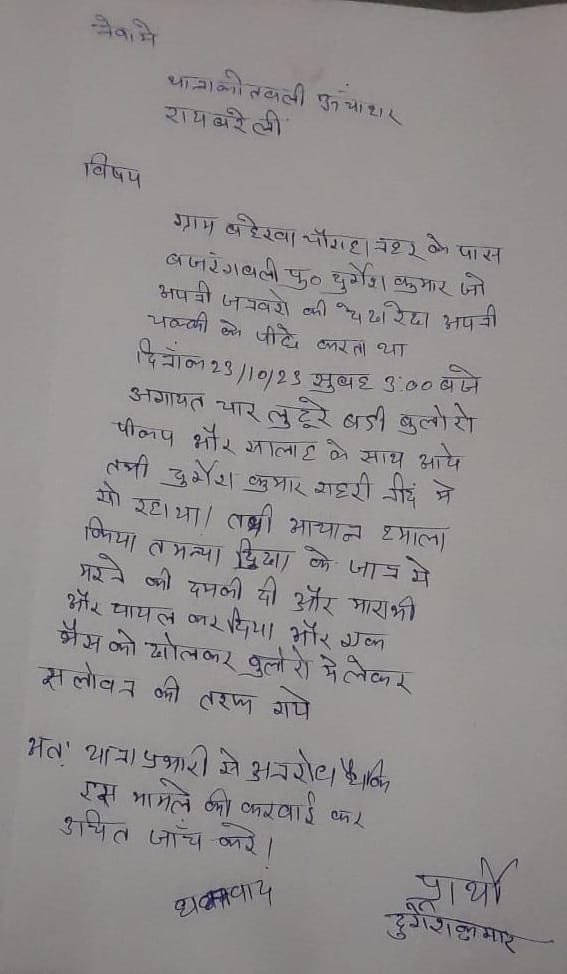 सेवामे
थानाकोतवली ऊंचाहार
रायबरेली
विषय
ग्राम बहेरवा चौराहा नहर के पास
बजरंगबली पु० दुर्गेश कुमार जो
अपनी जनवरो की देख रेख अपनी
चक्की के पीछे करता था
दिनाँक 23/10/23 सुबह 3:00 बजे
अगायत चार लुटूरे बडी बुलोरो
पीकप और सालाह के साथ आये
तभी दुर्गेश कुमार गहरी नीदं मे
सो रहा था। तभी आचान हमाला
किया तमन्चा दिखा के जान से
मरने की दमकी दी और मारा भी
और घायल कर दिया और एक
भैस को खोलकर बुलोरो मे लेकर
सलोवन की तरफ गये
अतः थाना प्रभारी से अनरोध है कि
इस मामले की करवाई कर
उचित जाँच करे।
धन्यवाद
प्रार्थी
दुर्गेश कुमार